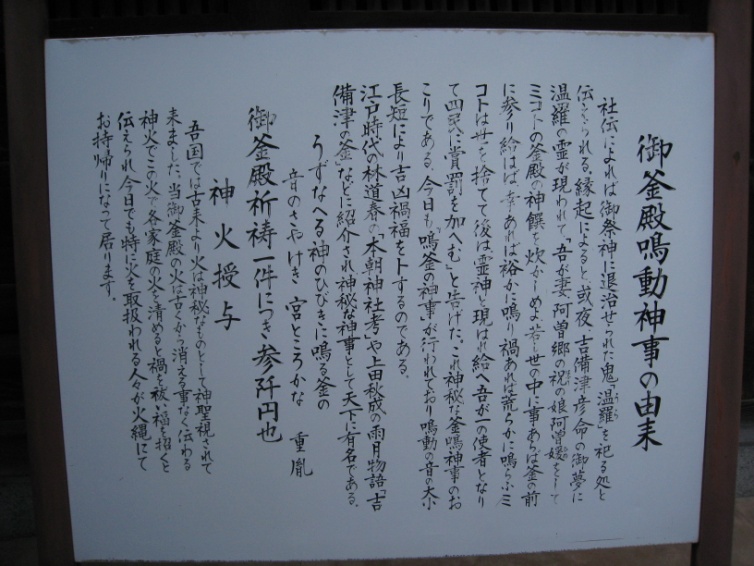 御釜殿鳴動神事の由来
社伝によれば御祭神に退治せられた鬼「温羅」を祀る処と
伝えられる。縁起によると或夜、吉備津彦命の御夢に
温羅の霊が現われて、吾が妻、阿曽郷の祝の娘阿曽媛をして
ミコトの釜殿の神饌を炊がしめよ若し世の中に事あらば釜の前
に参り給はば幸あれば裕かに鳴り禍あれば荒らかに鳴らふミ
コトは世を捨てて後は霊神と現はれ給へ吾が一の使者となり
て四民に賞罰を加へむ」と告げた。これ神秘な釜鳴神事のお
こりである。今日も「鳴釜の神事」が行われており鳴動の音の大小
長短により吉凶禍福を卜するのである。
江戸時代の林道春の「本朝神社考」や上田秋成の雨月物語「吉
備津の釜」などに紹介され神秘な神事として天下に有名である。
うずなへる神のひびきに鳴る釜の
音のさやけき宮ところかな 重胤
御釜殿祈祷一件につき参阡円也
神火授与
吾国では古来より火は神秘なものとして神聖視されて
来ました。当御釜殿の火は古くから消える事なく伝わる
神火でこの火で各家庭の火を清めると禍を祓い福を招くと
伝えられ今日でも特に火を取扱われる人々が火縄にて
お持帰りになって居ります。